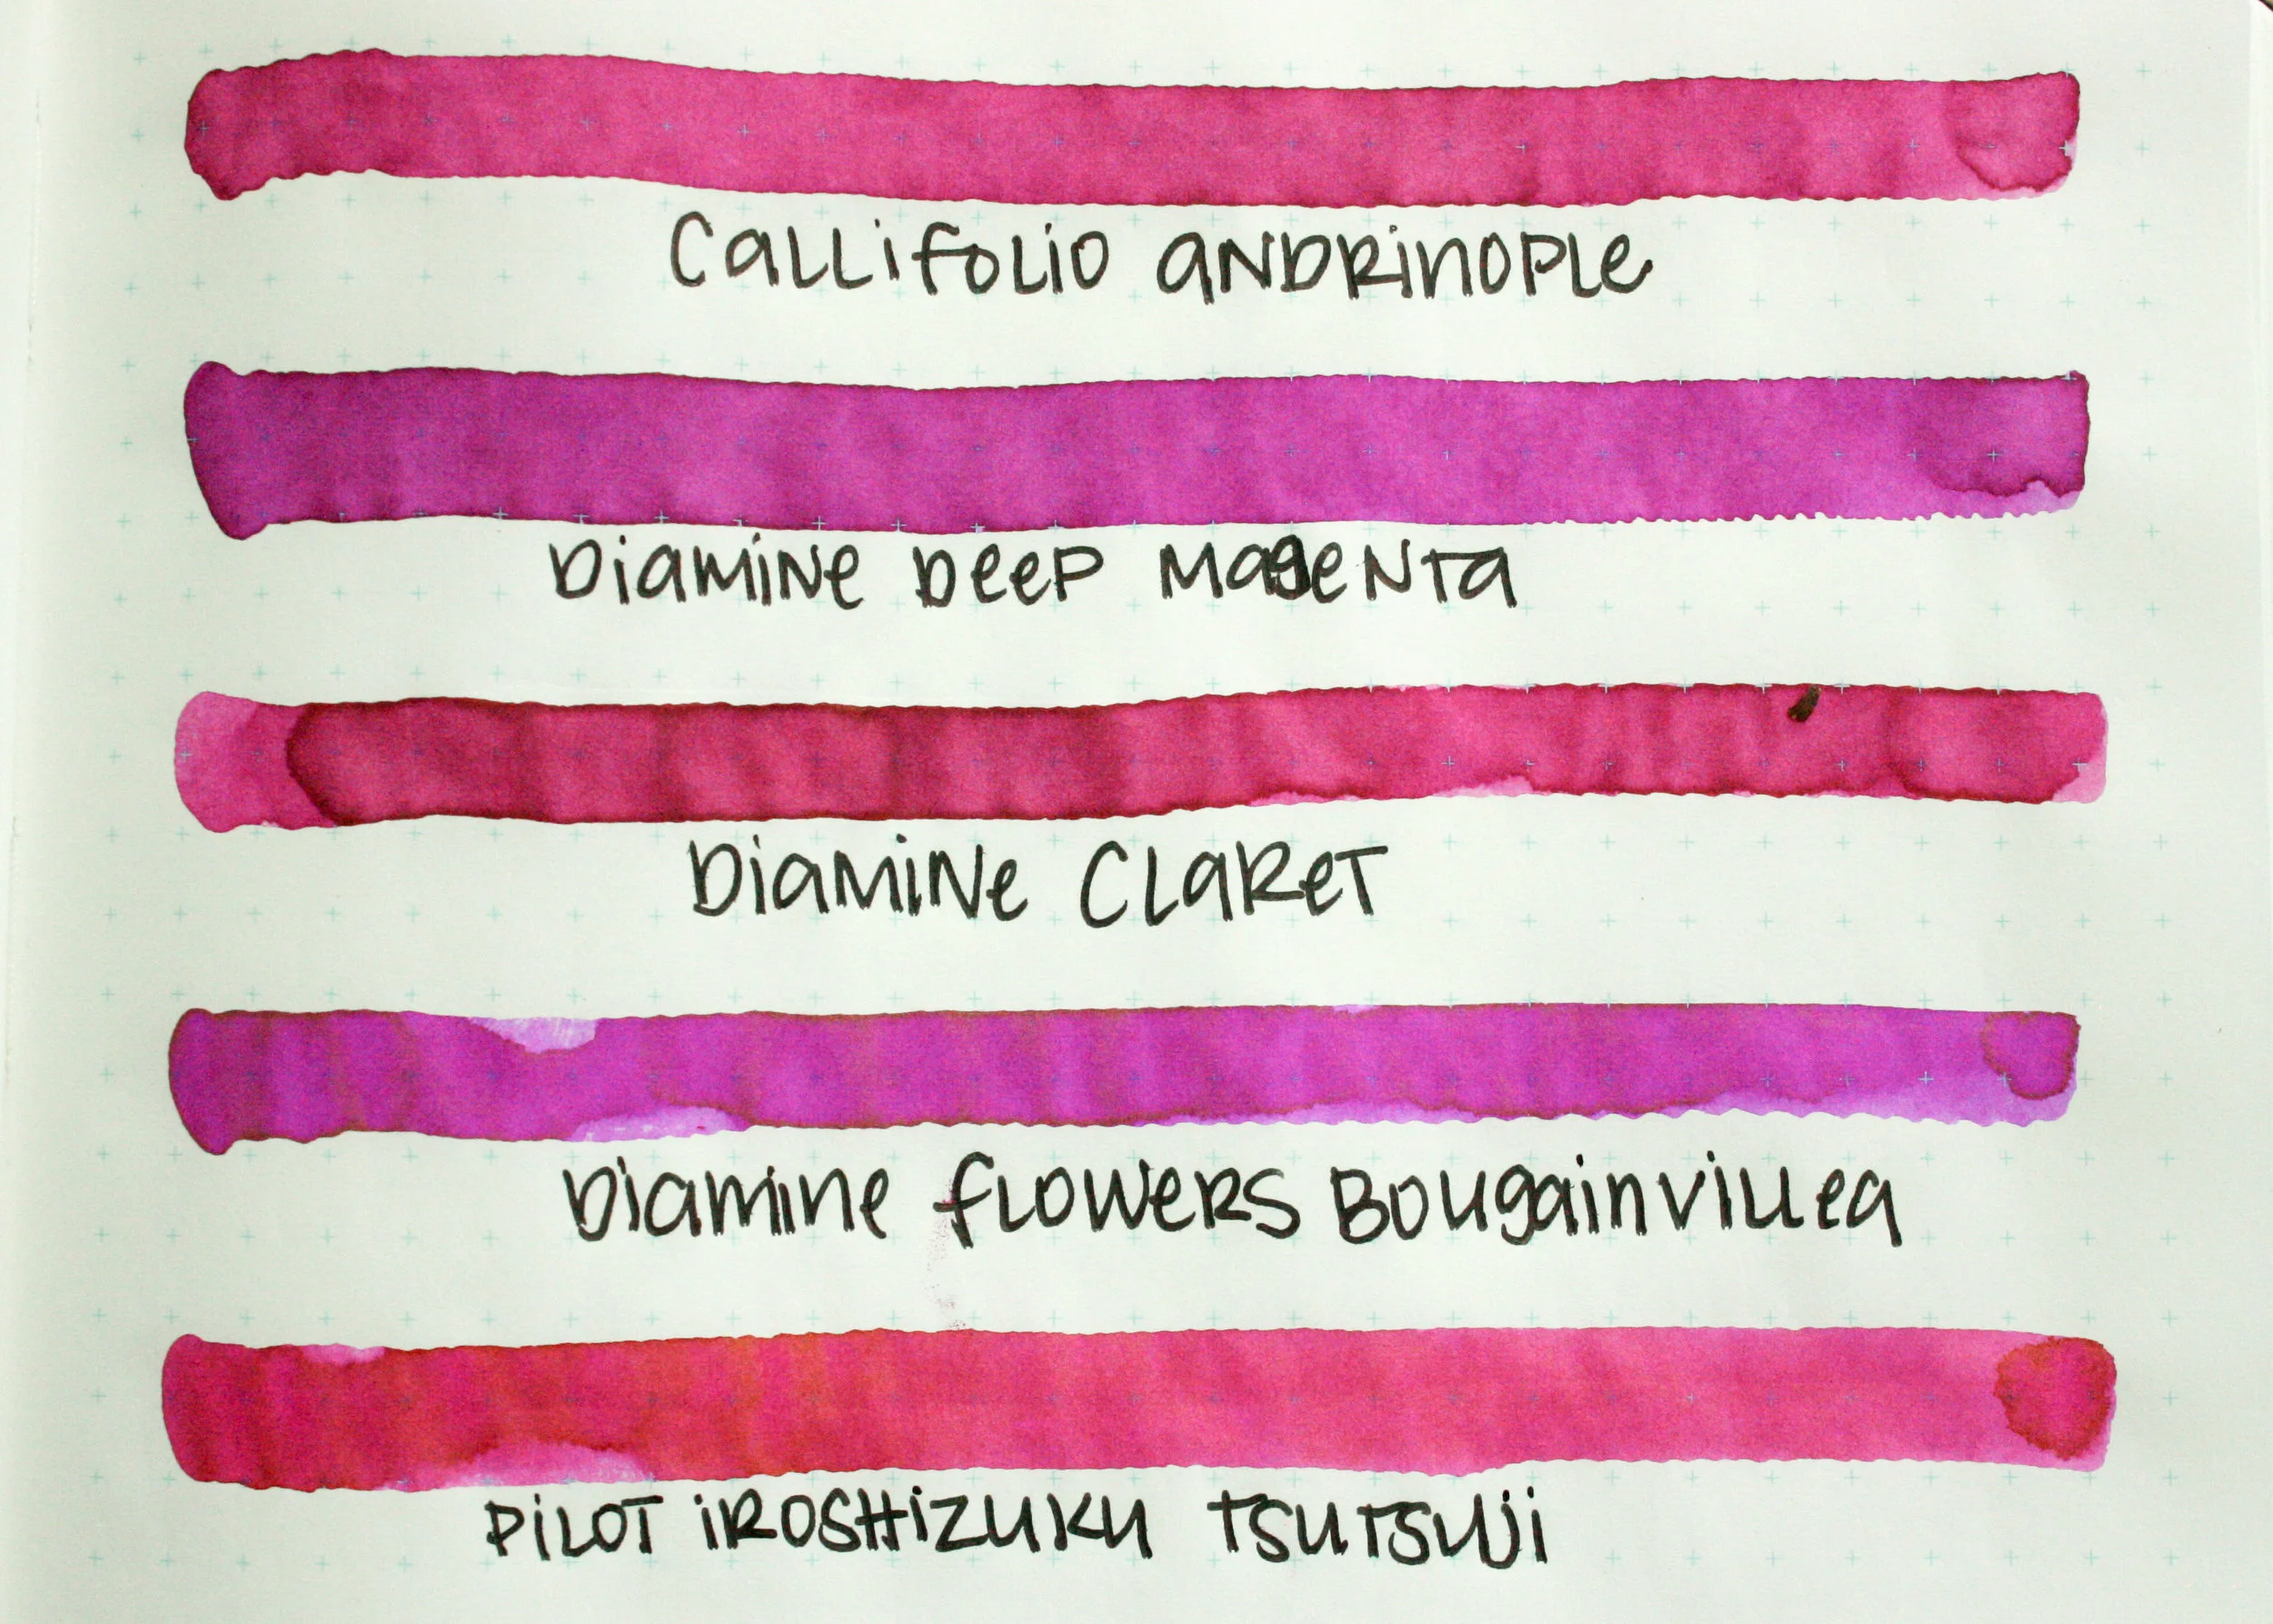 Callifolio Andrinople
Diamine Deep Magenta
Diamine Claret
Diamine Flowers Bougainvillea
Pilot Iroshizuku Tsutsuji